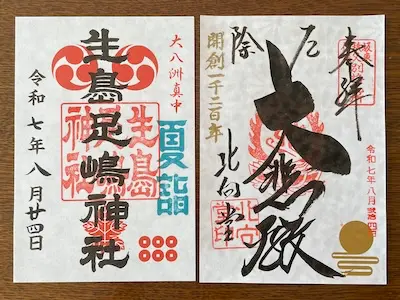 大八洲真中
生島足嶋神社
生島
神社
夏詣
令和七年八月廿四日
奉拝
厄除
大悲殿
北向堂
開創一千二百年
令和七年八月